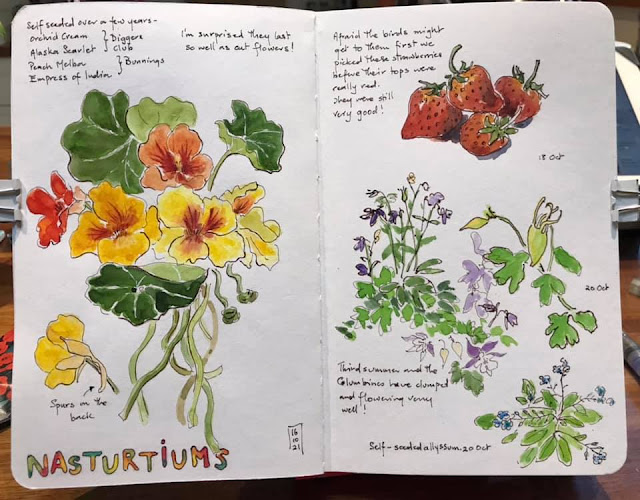 Self seeded over a few years-
Orchid Cream } Diggers
Alaska Scarlet } Club
Peach Melba } Bunnings
Empress of India
I'm surprised they last
so well as cut flowers!
Spurs on the
back
16
10
21
NASTURTIUMS
Afraid the birds might
get to them first we
picked these strawberries
before their tops were
really red.
They were still
very good!
18 Oct
20 Oct
Third summer and the
Columbines have clumped
and flowering very
well!
Self-seeded allyssum. 20 Oct